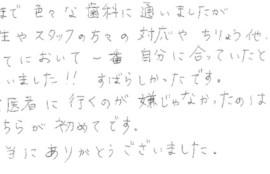 まで色々な歯科に通いましたが
生やスタッフの方々の対応やちりょう他、
てにおいて一番自分に合っていたと
いました!!すばらしかったです。
医者に行くのが嫌じゃなかったのは
ちらが初めてです。
当にありがとうございました。